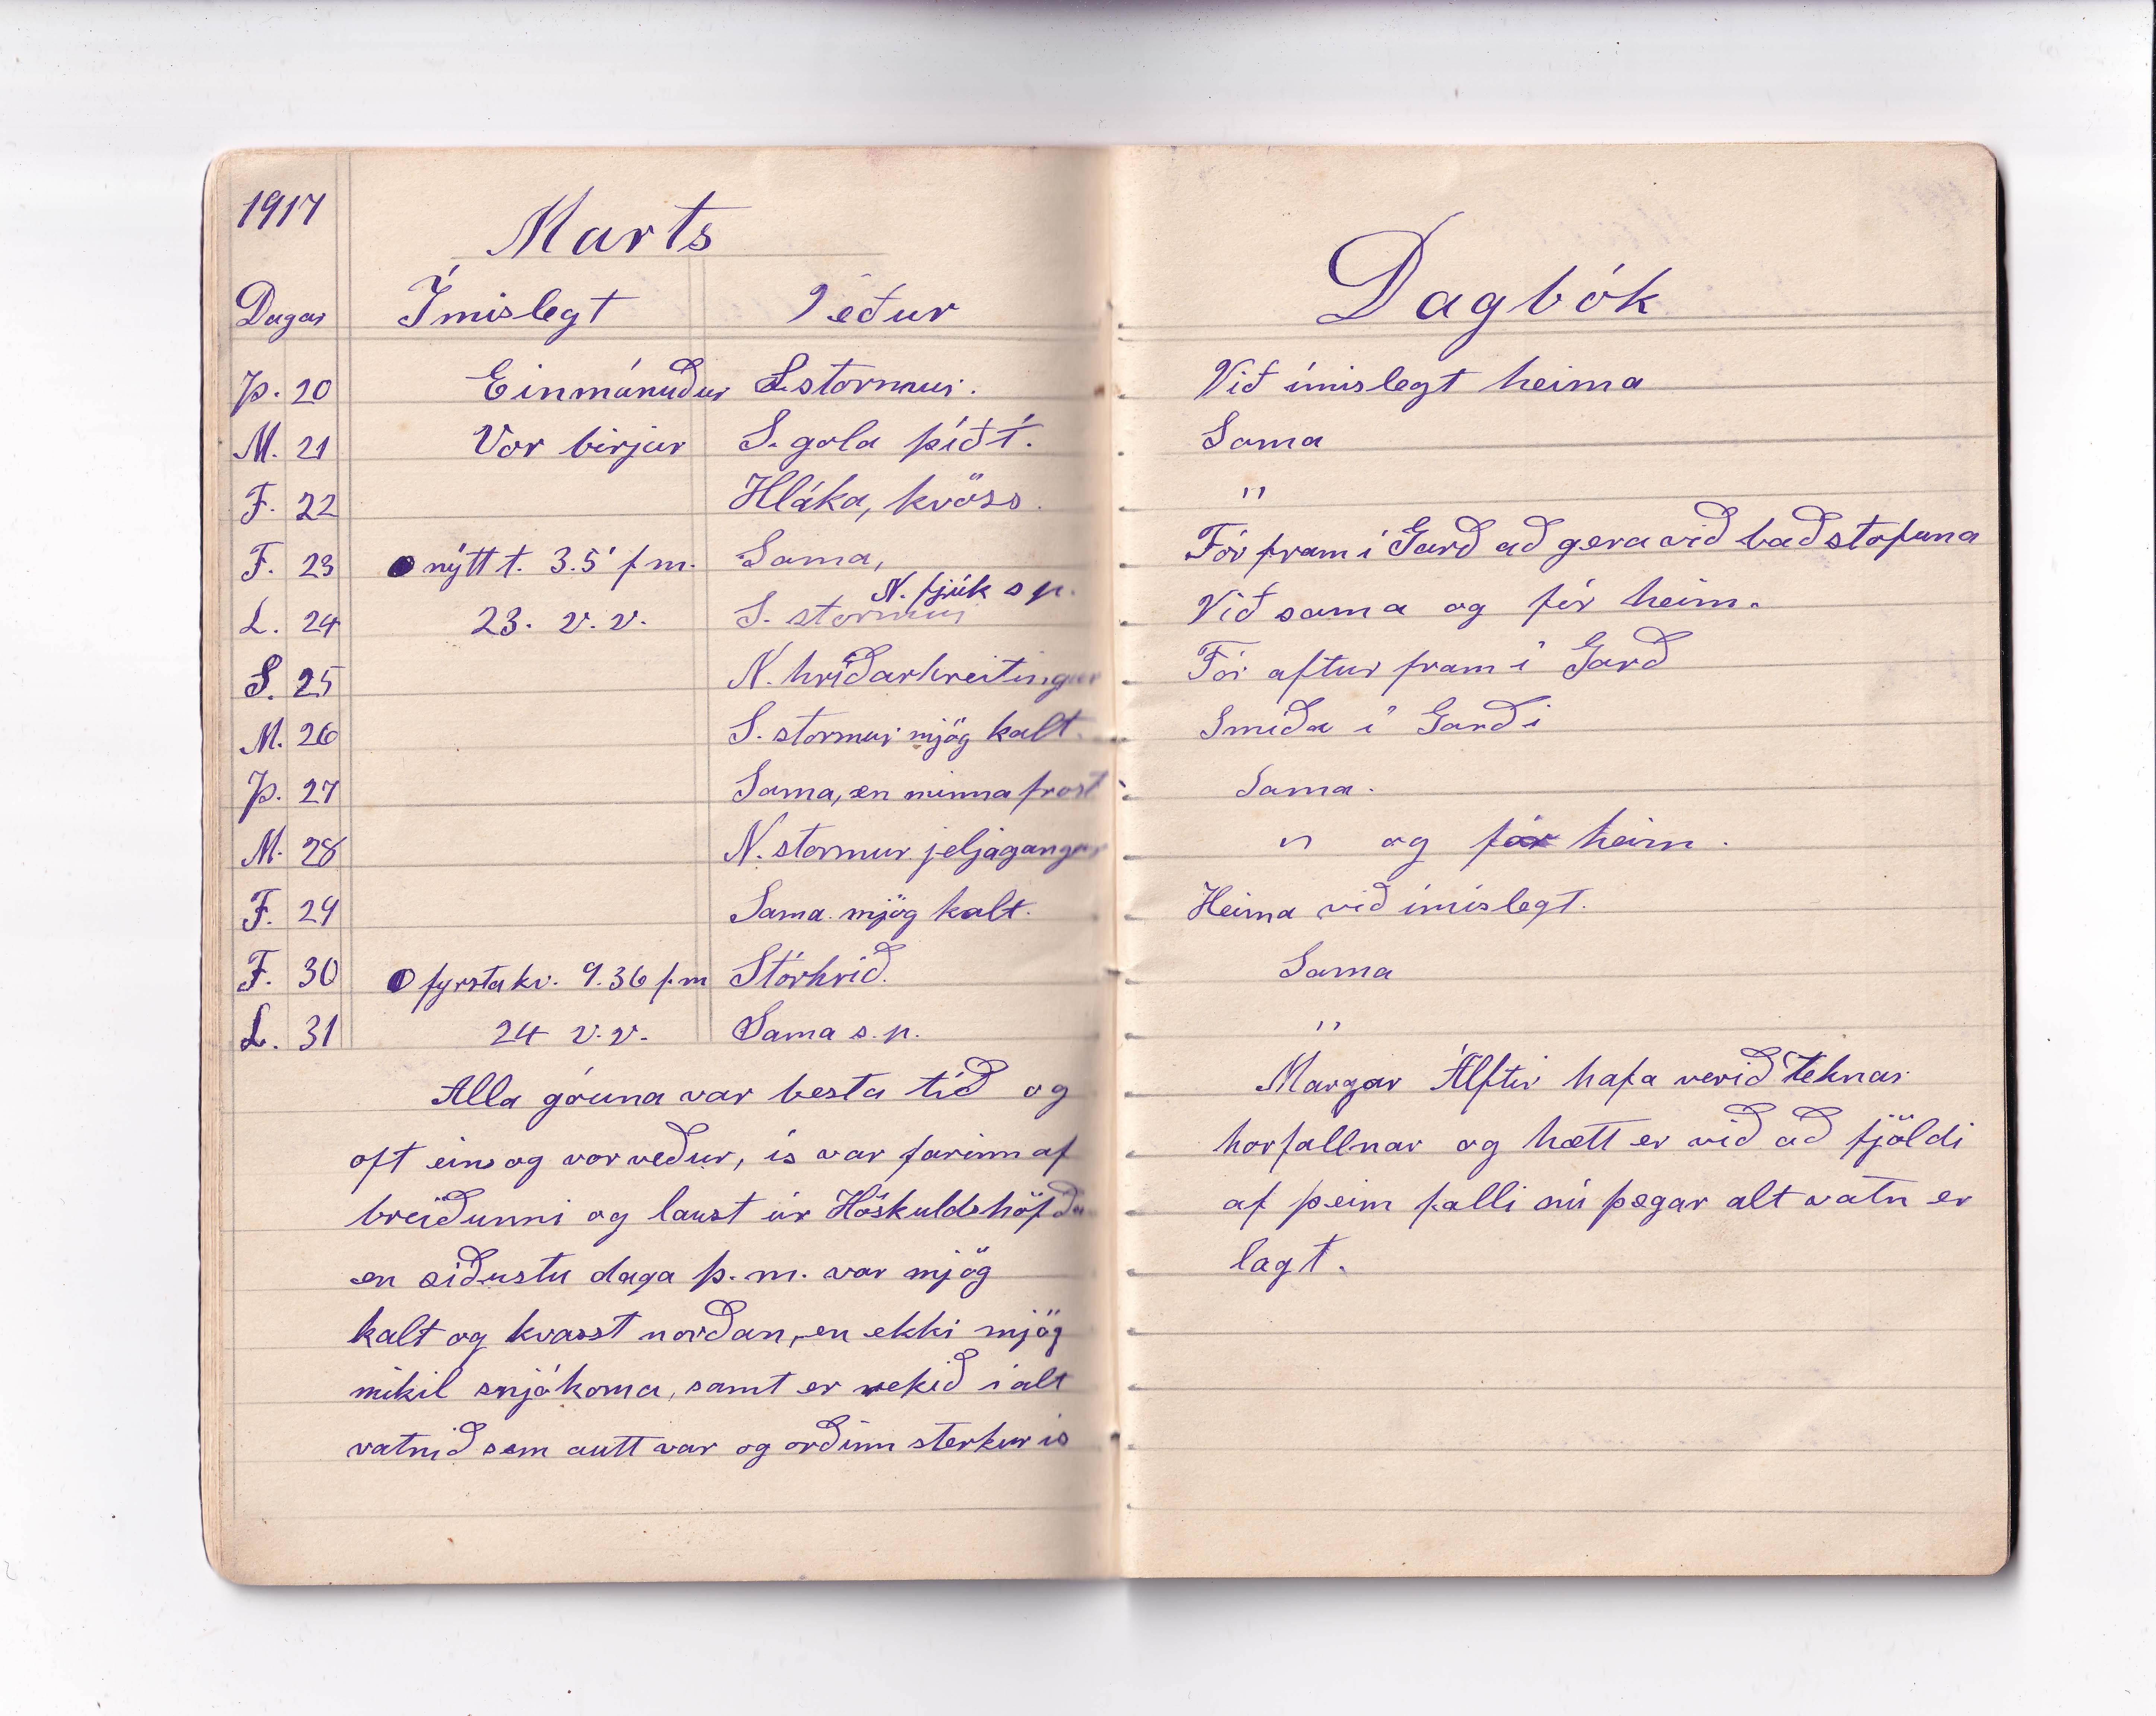 1917
Marts
Dagar Ímislegt Veður
Þ. 20 Einmánuður S. stormur.
M. 21 Vor birjar S. gola þíðt.
F. 22 Hláka, kvöss.
F. 23 nýtt t. 3.5' f m. Sama,
N. fjúk s p.
L. 24 23. v. v. S. stormur
S. 25 N. hríðarhreitingur
M. 26 S. stormur mjög kalt.
Þ. 27 Sama, en minna frost
M. 28 N. stormur jeljagangur
F. 29 Sama. mjög kalt.
F. 30 fyrsta kv. 9.36 f. m Stórhríð.
L. 31 24 v. v. Sama s. p.
Alla góuna var besta tíð og
oft eins og vorveður, ís var farinn af
breiðunni og laust úr Höskuldshöfða
en síðustu daga þ. m. var mjög
kalt og kvasst norðan, en ekki mjög
mikil snjókoma, samt er rekið í alt
vatnið sem autt var og orðinn sterkur ís
Dagbók
Við ímislegt heima
Sama
"
Fór fram í Garð að gera við baðstofuna
Við sama og fór heim.
Fór aftur fram í Garð
Smíða í Garði
Sama.
" og fór heim.
Heima við ímislegt.
Sama
"
Margar Álftir hafa verið teknar
horfallnar og hætt er við að fjöldi
af þeim falli nú þegar alt vatn er
lagt.